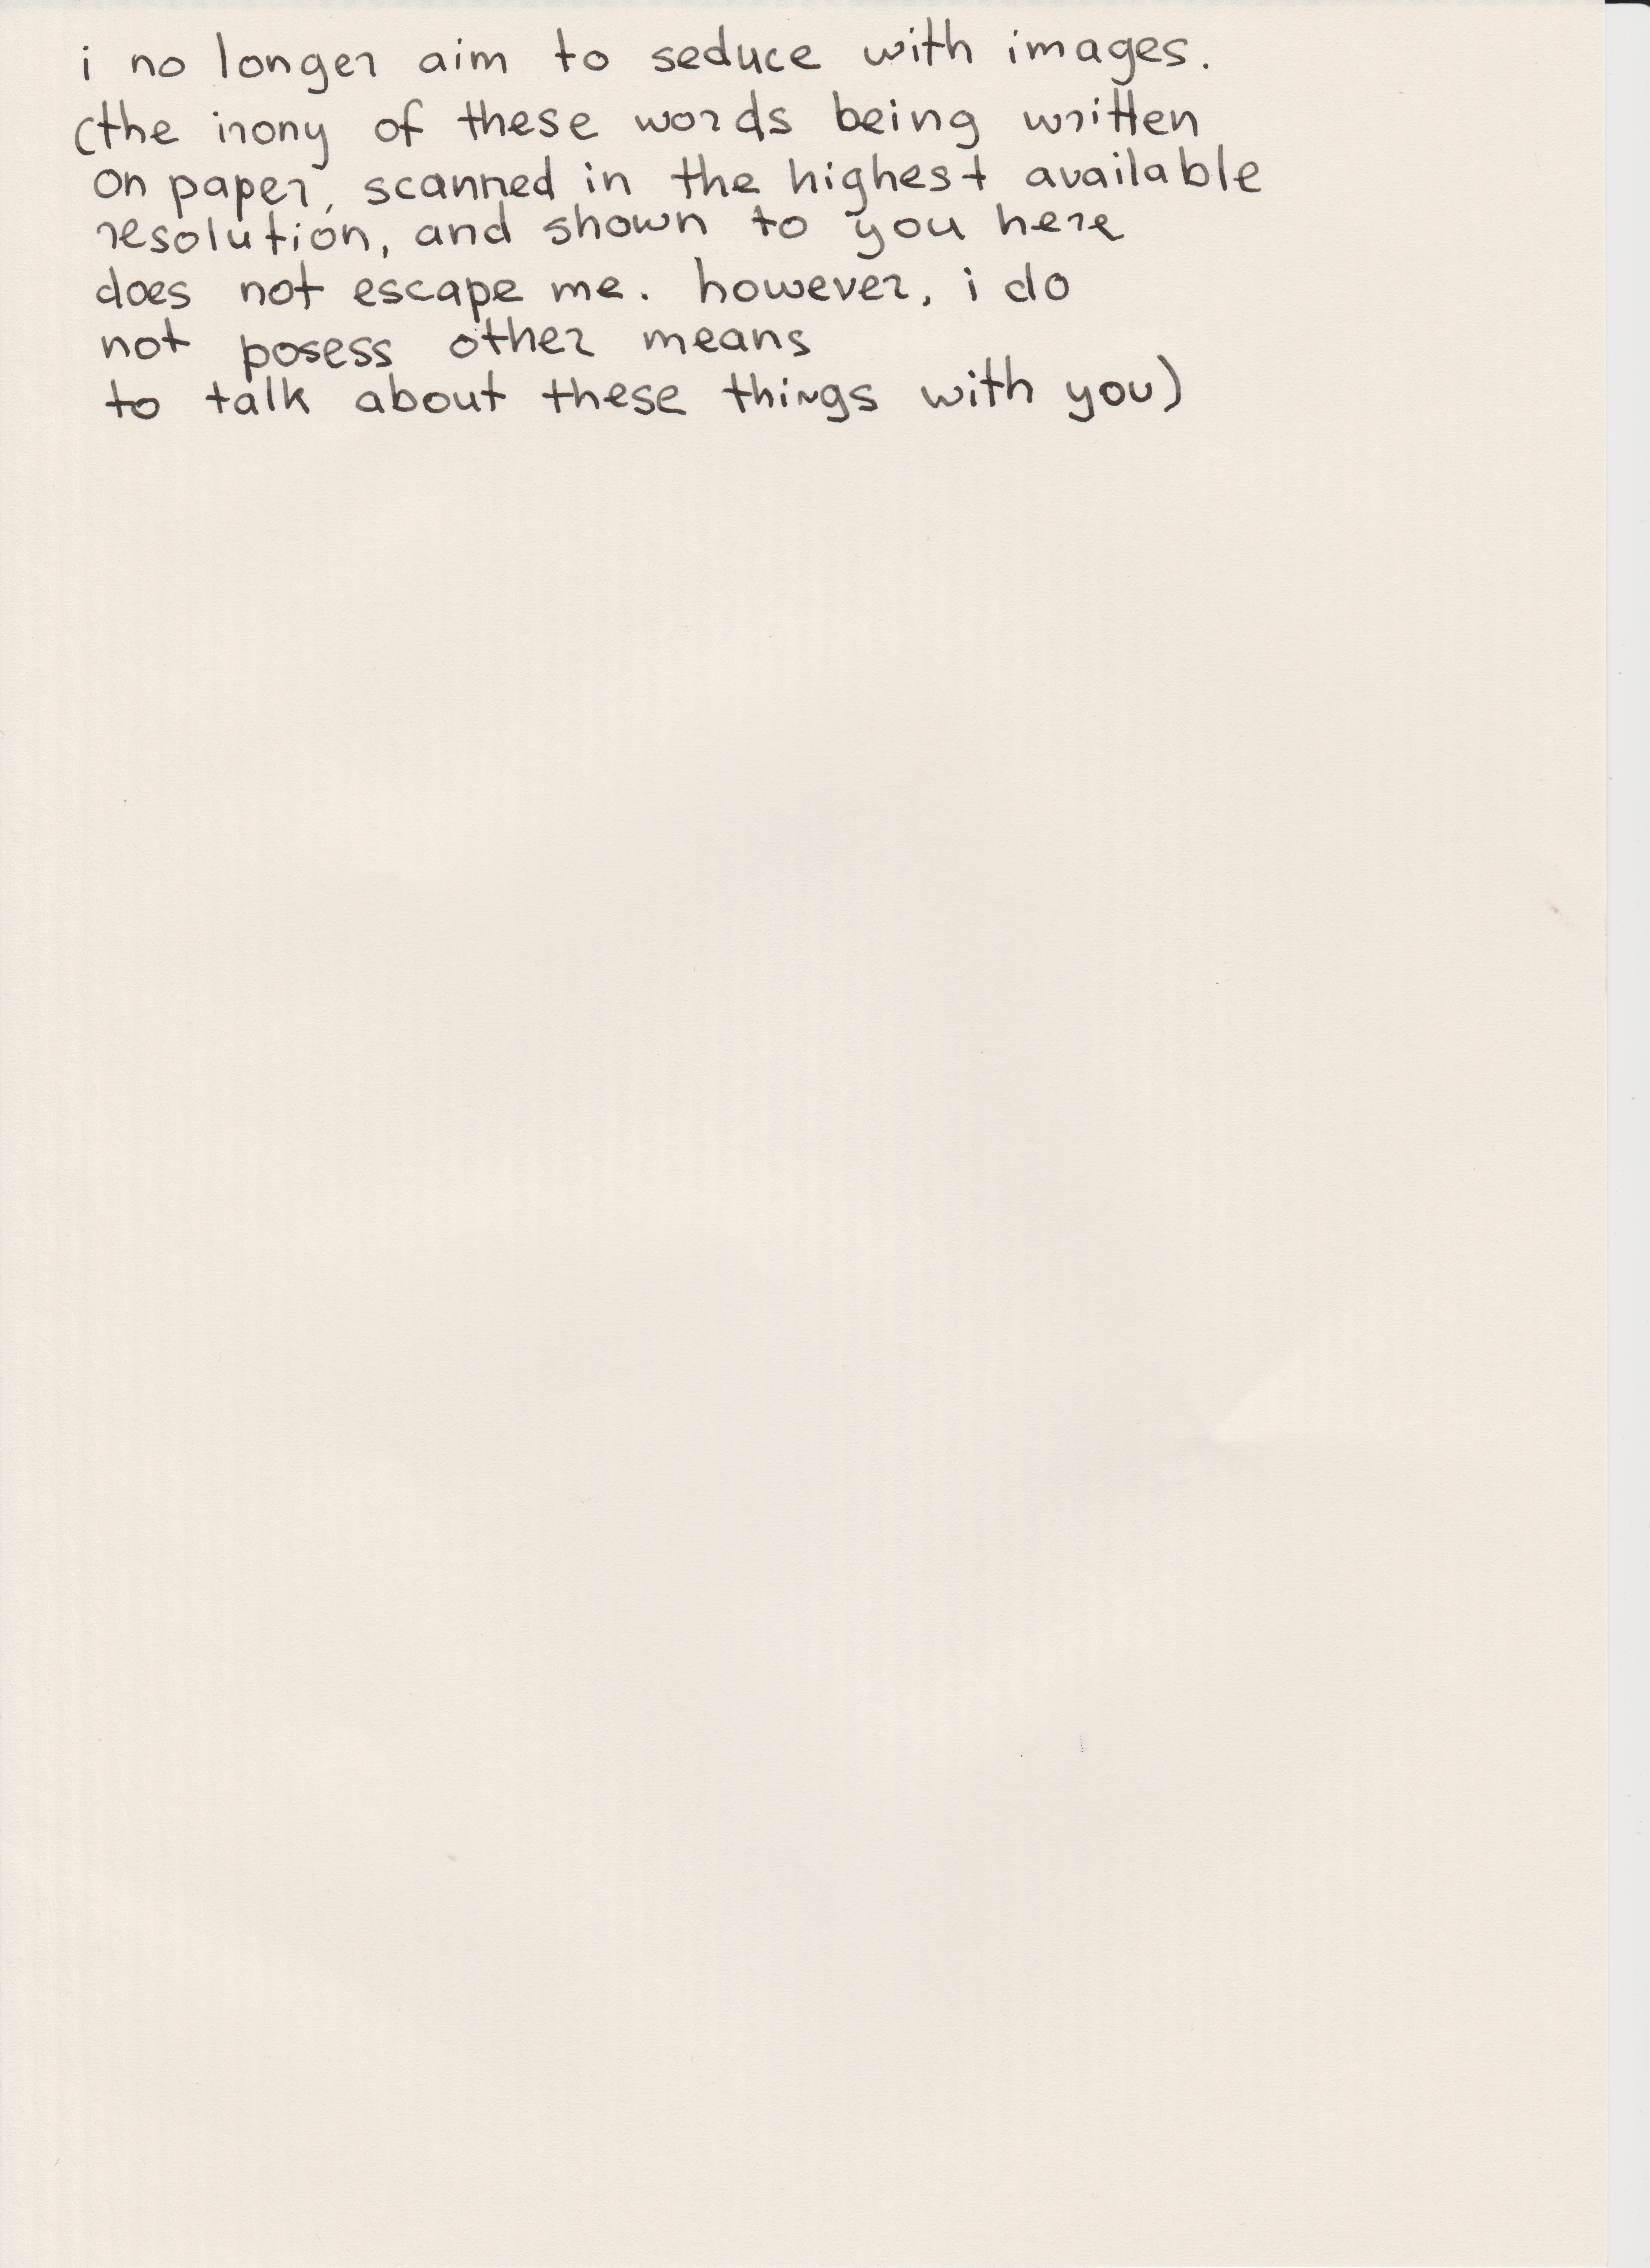 i no longer aim to seduce with images.
(the irony of these words being written
on paper, scanned in the highest available
resolution, and shown to you here
does not escape me. however, i do
not posess other means
to talk about these things with you)